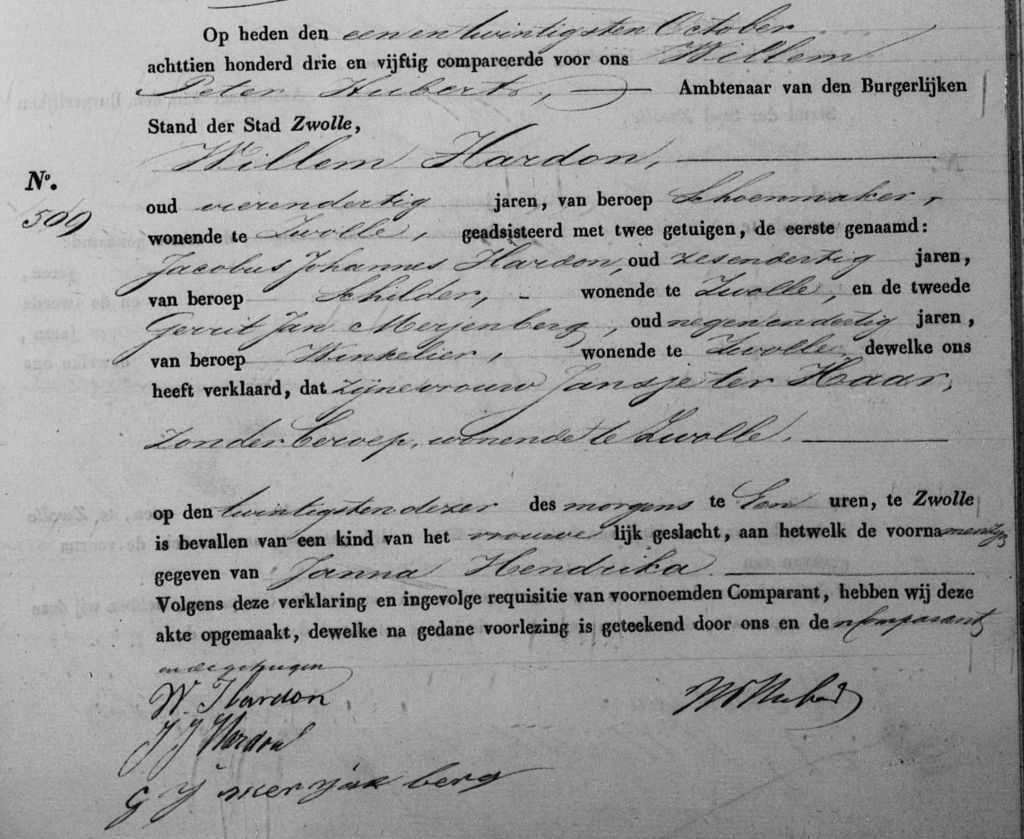 Op heden den een en twintigsten October
achttien honderd drie en vijftig compareerde voor ons Willem
Peter Huberts, Ambtenaar van den Burgerlijken
Stand der Stad Zwolle,
Willem Hardon,
No.
509
oud vierendertig jaren, van beroep Schoenmaker,
wonende te Zwolle, geadsisteerd met twee getuigen, de eerste genaamd:
Jacobus Johannes Hardon, oud zesendertig jaren,
van beroep Schilder, wonende te Zwolle, en de tweede
Gerrit Jan Merjenberg, oud negen en dertig jaren,
van beroep Winkelier, wonende te Zwolle dewelke ons
heeft verklaard, dat zijne vrouw Jansje ter Haar,
zonder beroep, wonende te Zwolle.
op den twintigsten dezer des morgens te Een uren, te Zwolle
is bevallen van een kind van het vrouwe lijk geslacht, aan hetwelk de voornamen zijn
gegeven van Janna Hendrika
Volgens deze verklaring en ingevolge requisitie van voornoemden Comparant, hebben wij deze
akte opgemaakt, dewelke na gedane voorlezing is geteekend door ons en den Comparant
en de getuigen
W. Hardon
J J Hardon
G J merjenberg